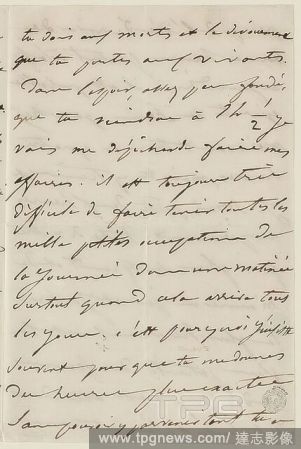 tu dois aux morts et le dévouement
que tu portes aux vivants.
Dans l'espoir, assez peu fondé,
que tu viendras à 2h 1/2 je
vais me dépêcher de faire mes
affaires. il est toujours très
difficile de faire tenir toutes les
mille petites occupations de
la journée dans une matinée
surtout quand cela arrive tous
les jours. c'est pourquoi j'insiste
souvent pour que tu me donnes
des heures plus exactes
sans pouvoir y parvenir tant tu
TPG
www.tpgnews.com / 達志影像